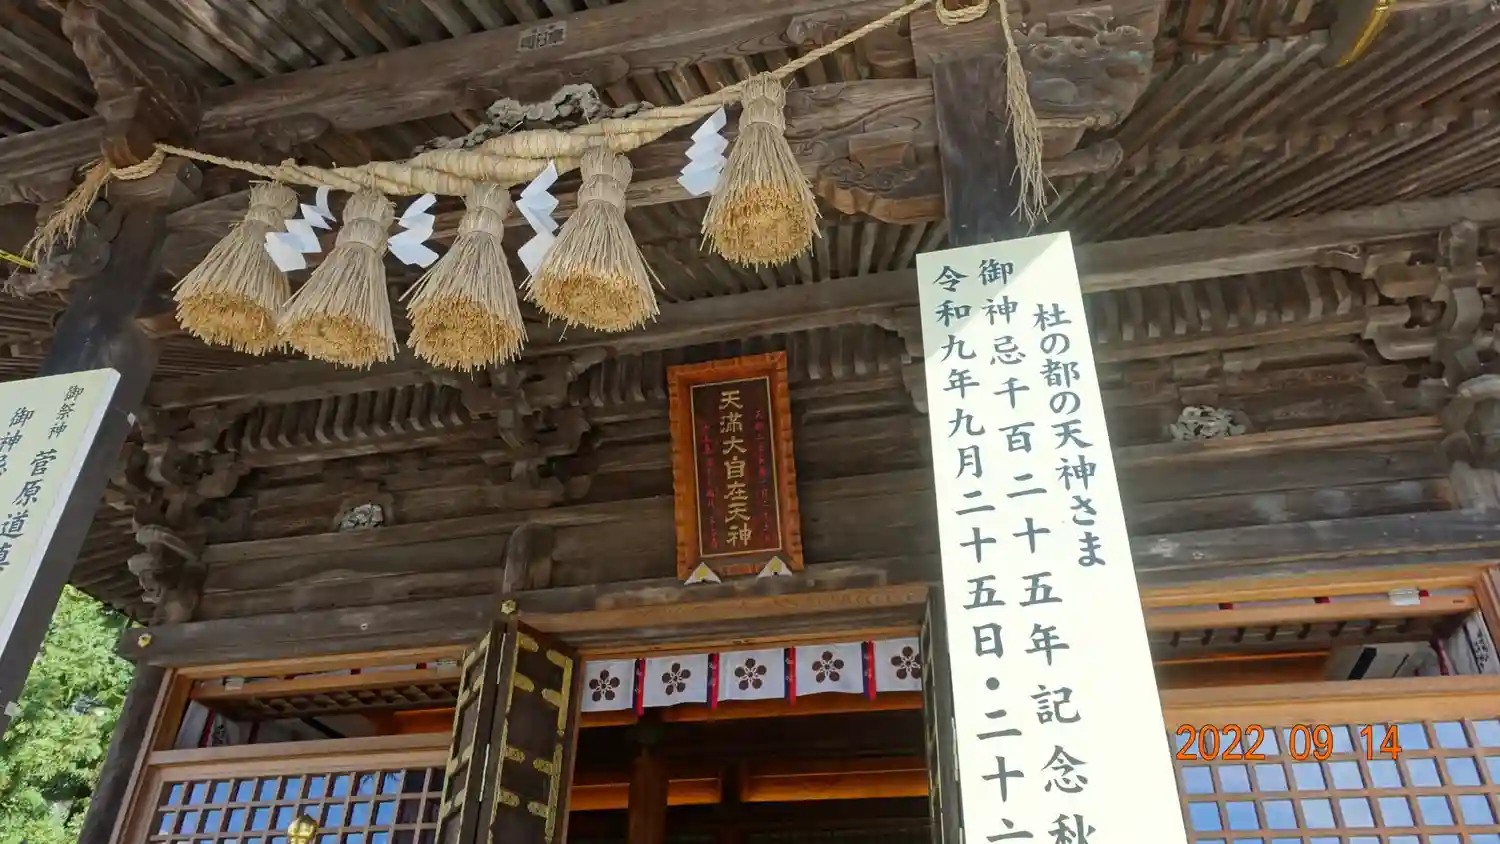 杜の都の天神さま
御神忌千百二十五年記念秋
令和九年九月二十五日・二十六
天満大自在天神
御祭神 菅原道真
御神忌
2022 09 14